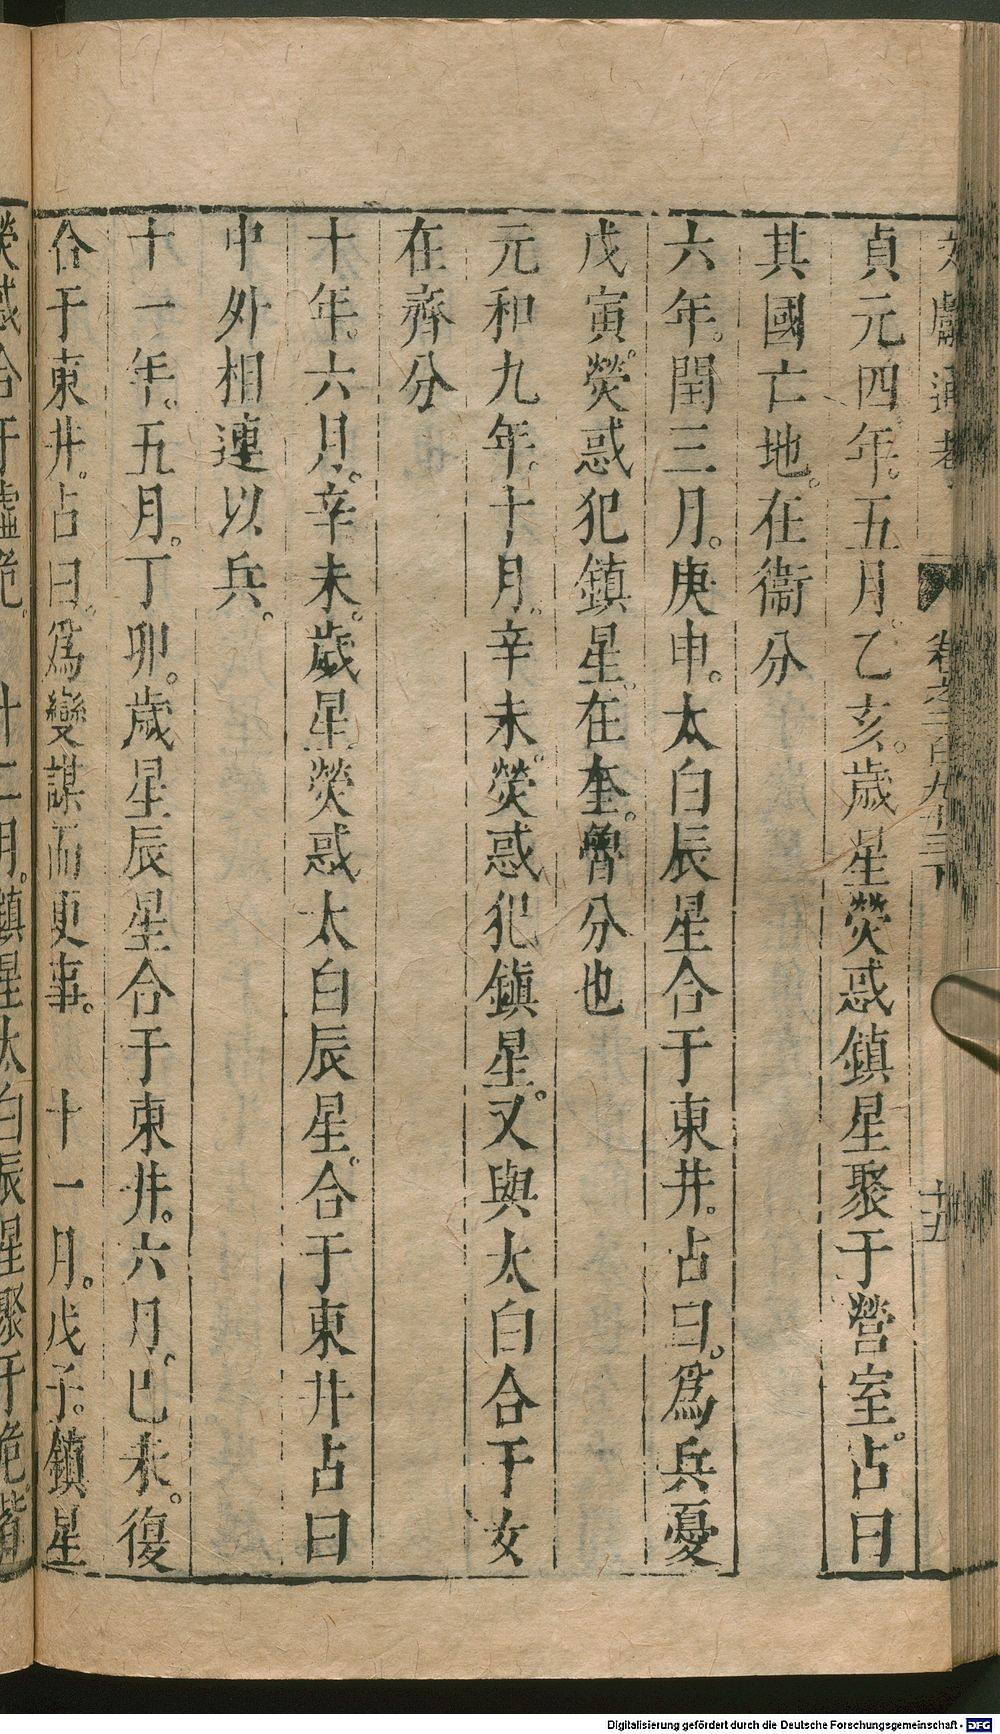 文獻通考 卷之二百九十三下 十五
貞元四年。五月。乙亥。歲星熒惑鎮星聚于營室。占曰
其國亡地。在衞分
六年。閏三月。庚申。太白辰星合于東井。占曰。爲兵憂
戊寅。熒惑犯鎮星。在奎。魯分也
元和九年。十月。辛未。熒惑犯鎮星。又與太白合于女
在齊分
十年。六月。辛未。歲星熒惑太白辰星。合于東井占曰
中外相連以兵。
十一年。五月。丁卯。歲星辰星合于東井。六月。已未。復
合于東井。占曰。爲變謀而更事。 十一月。戊子。鎮星
熒惑合于虛危。 十二月。鎮星太白辰星聚于危。皆
Digitalisierung gefördert durch die Deutsche Forschungsgemeinschaft - DFG